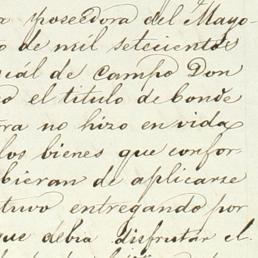 a poseedora del Mayo-
o de mil setecientos
cial de campo Don
o el titulo de Conde
rra no hizo en vida
los bienes que confor-
bieran de aplicarse
tuvo entregando por
que debia disfrutar el